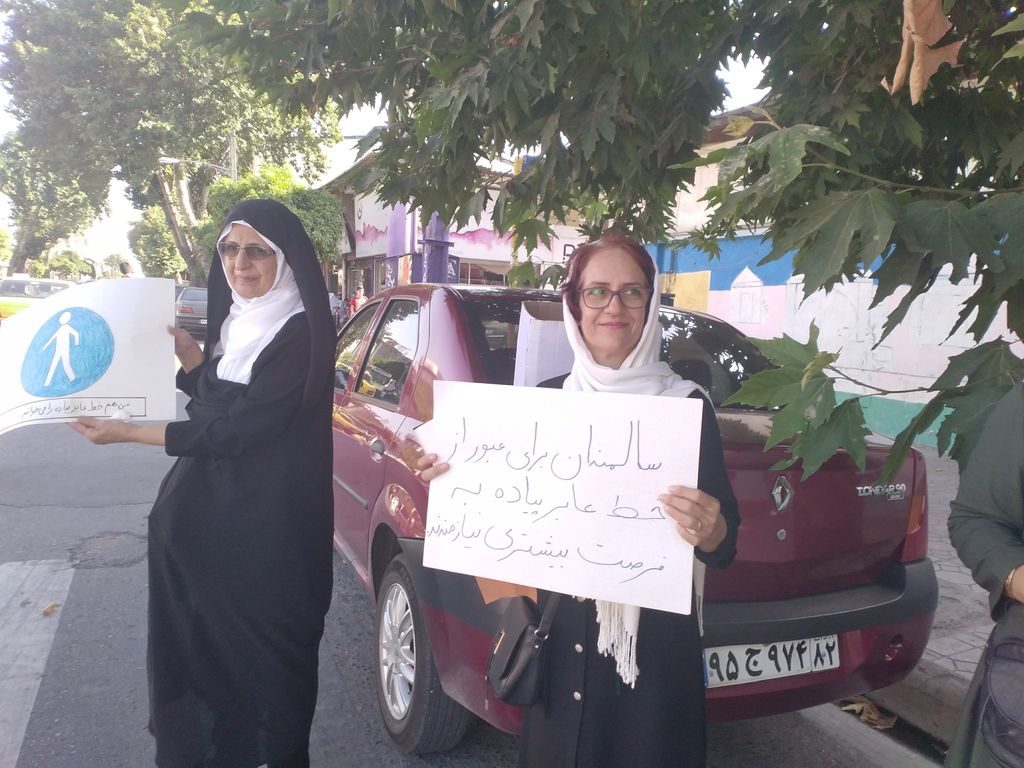 من هم خط عابر پیاده را می‌خواهم
سالمندان برای عبور از
خط عابر پیاده به
فرصت بیشتری نیازمندند
TONDAR 90
۹۵ ج ۹۷۴ ۸۲